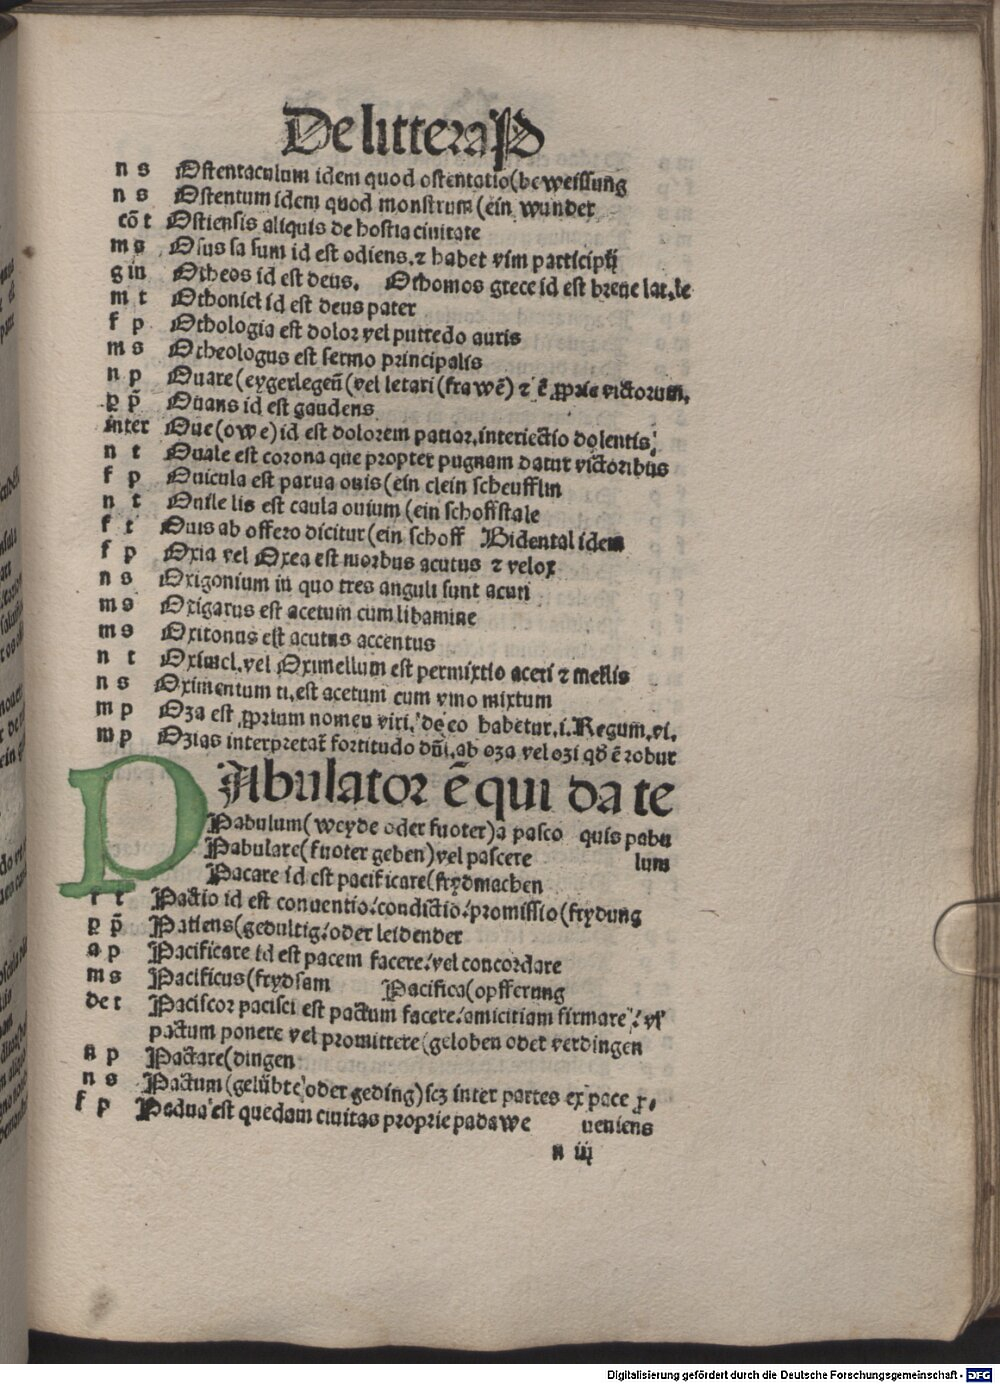 De littera P
n s Ostentaculum idem quod ostentatio (beweissung
n s Ostentum idem quod monstrum (ein wunder
cō t Ostiensis aliquis de hostia ciuitate
m s Osus sa sum id est odiens. ⁊ habet vim participij
g in Otheos id est deus. Othomos grece id est breue lat. le
m t Othonicl id est deus pater
f p Othologia est dolor vel putredo auris
m s Otheologus est sermo principalis
n p Ouare (eygerlegeñ (vel letari (frawē) ⁊ ē ꝓprie victorum.
p p̄ Ouans id est gaudens
inter Oue (owe) id est dolorem patior. interiectio dolentis.
n t Ouale est corona que propter pugnam datur victoribus
f p Ouicula est parua ouis (ein clein scheufflin
n t Ouile lis est caula ouium (ein schoffstale
f t Ouis ab offero dicitur (ein schoff Bidental idem
f p Oxia vel Oxea est morbus acutus ⁊ velox
n s Oxigonium in quo tres anguli sunt acuti
m s Oxigarus est acetum cum libamine
m s Oxitonus est acutus accentus
n t Oximel. vel Oximellum est permixtio aceti ⁊ mellis
n s Oximentum ti. est acetum cum vino mixtum
m p Oza est ꝓprium nomen viri. de eo habetur. i. Regum. vi.
m p Ozias interpretat᷑ fortitudo dñi. ab oza vel ozi qđ ē robur
PAbulator ē qui da te
Pabulum (weyde oder fuoter) a pasco quis pabu
Pabulare (fuoter geben) vel pascere lum
Pacare id est pacificare (frydmachen
f t Pactio id est conuentio: condictio: promissio (frydung
p p̄ Patiens (gedultig: oder leidender
a p Pacificare id est pacem facere: vel concordare
m s Pacificus (frydsam Pacifica (opfferung
de t Paciscor pacisci est pactum facere: amicitiam firmare: vl'
pactum ponere vel promittere (geloben oder verdingen
n p Pactare (dingen
n s Pactum (gelübte oder geding) scz inter partes ex pace ꝓ.
f p Padua est quedam ciuitas proprie padawe ueniens
n iij
Digitalisierung gefördert durch die Deutsche Forschungsgemeinschaft - DFG